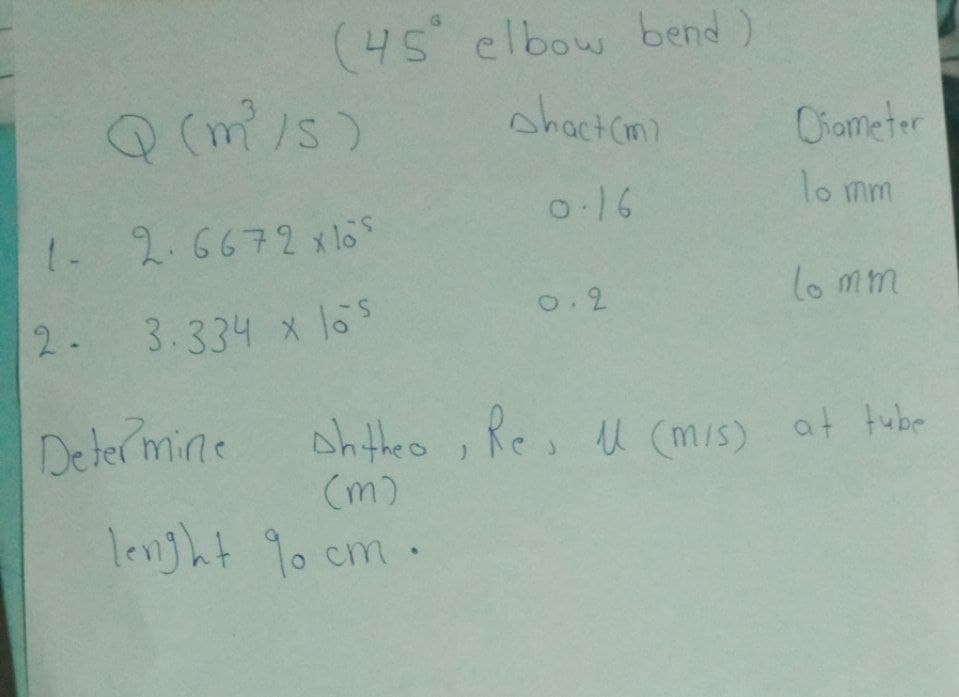 (45° elbow bend)
Q (m³/s) Δhact(m) Diameter
1- 2.6672 x 10⁻⁵ 0.16 10 mm
2. 3.334 x 10⁻⁵ 0.2 10 mm
Determine Δhtheo, Re, U (m/s) at tube
(m)
lenght 90 cm.